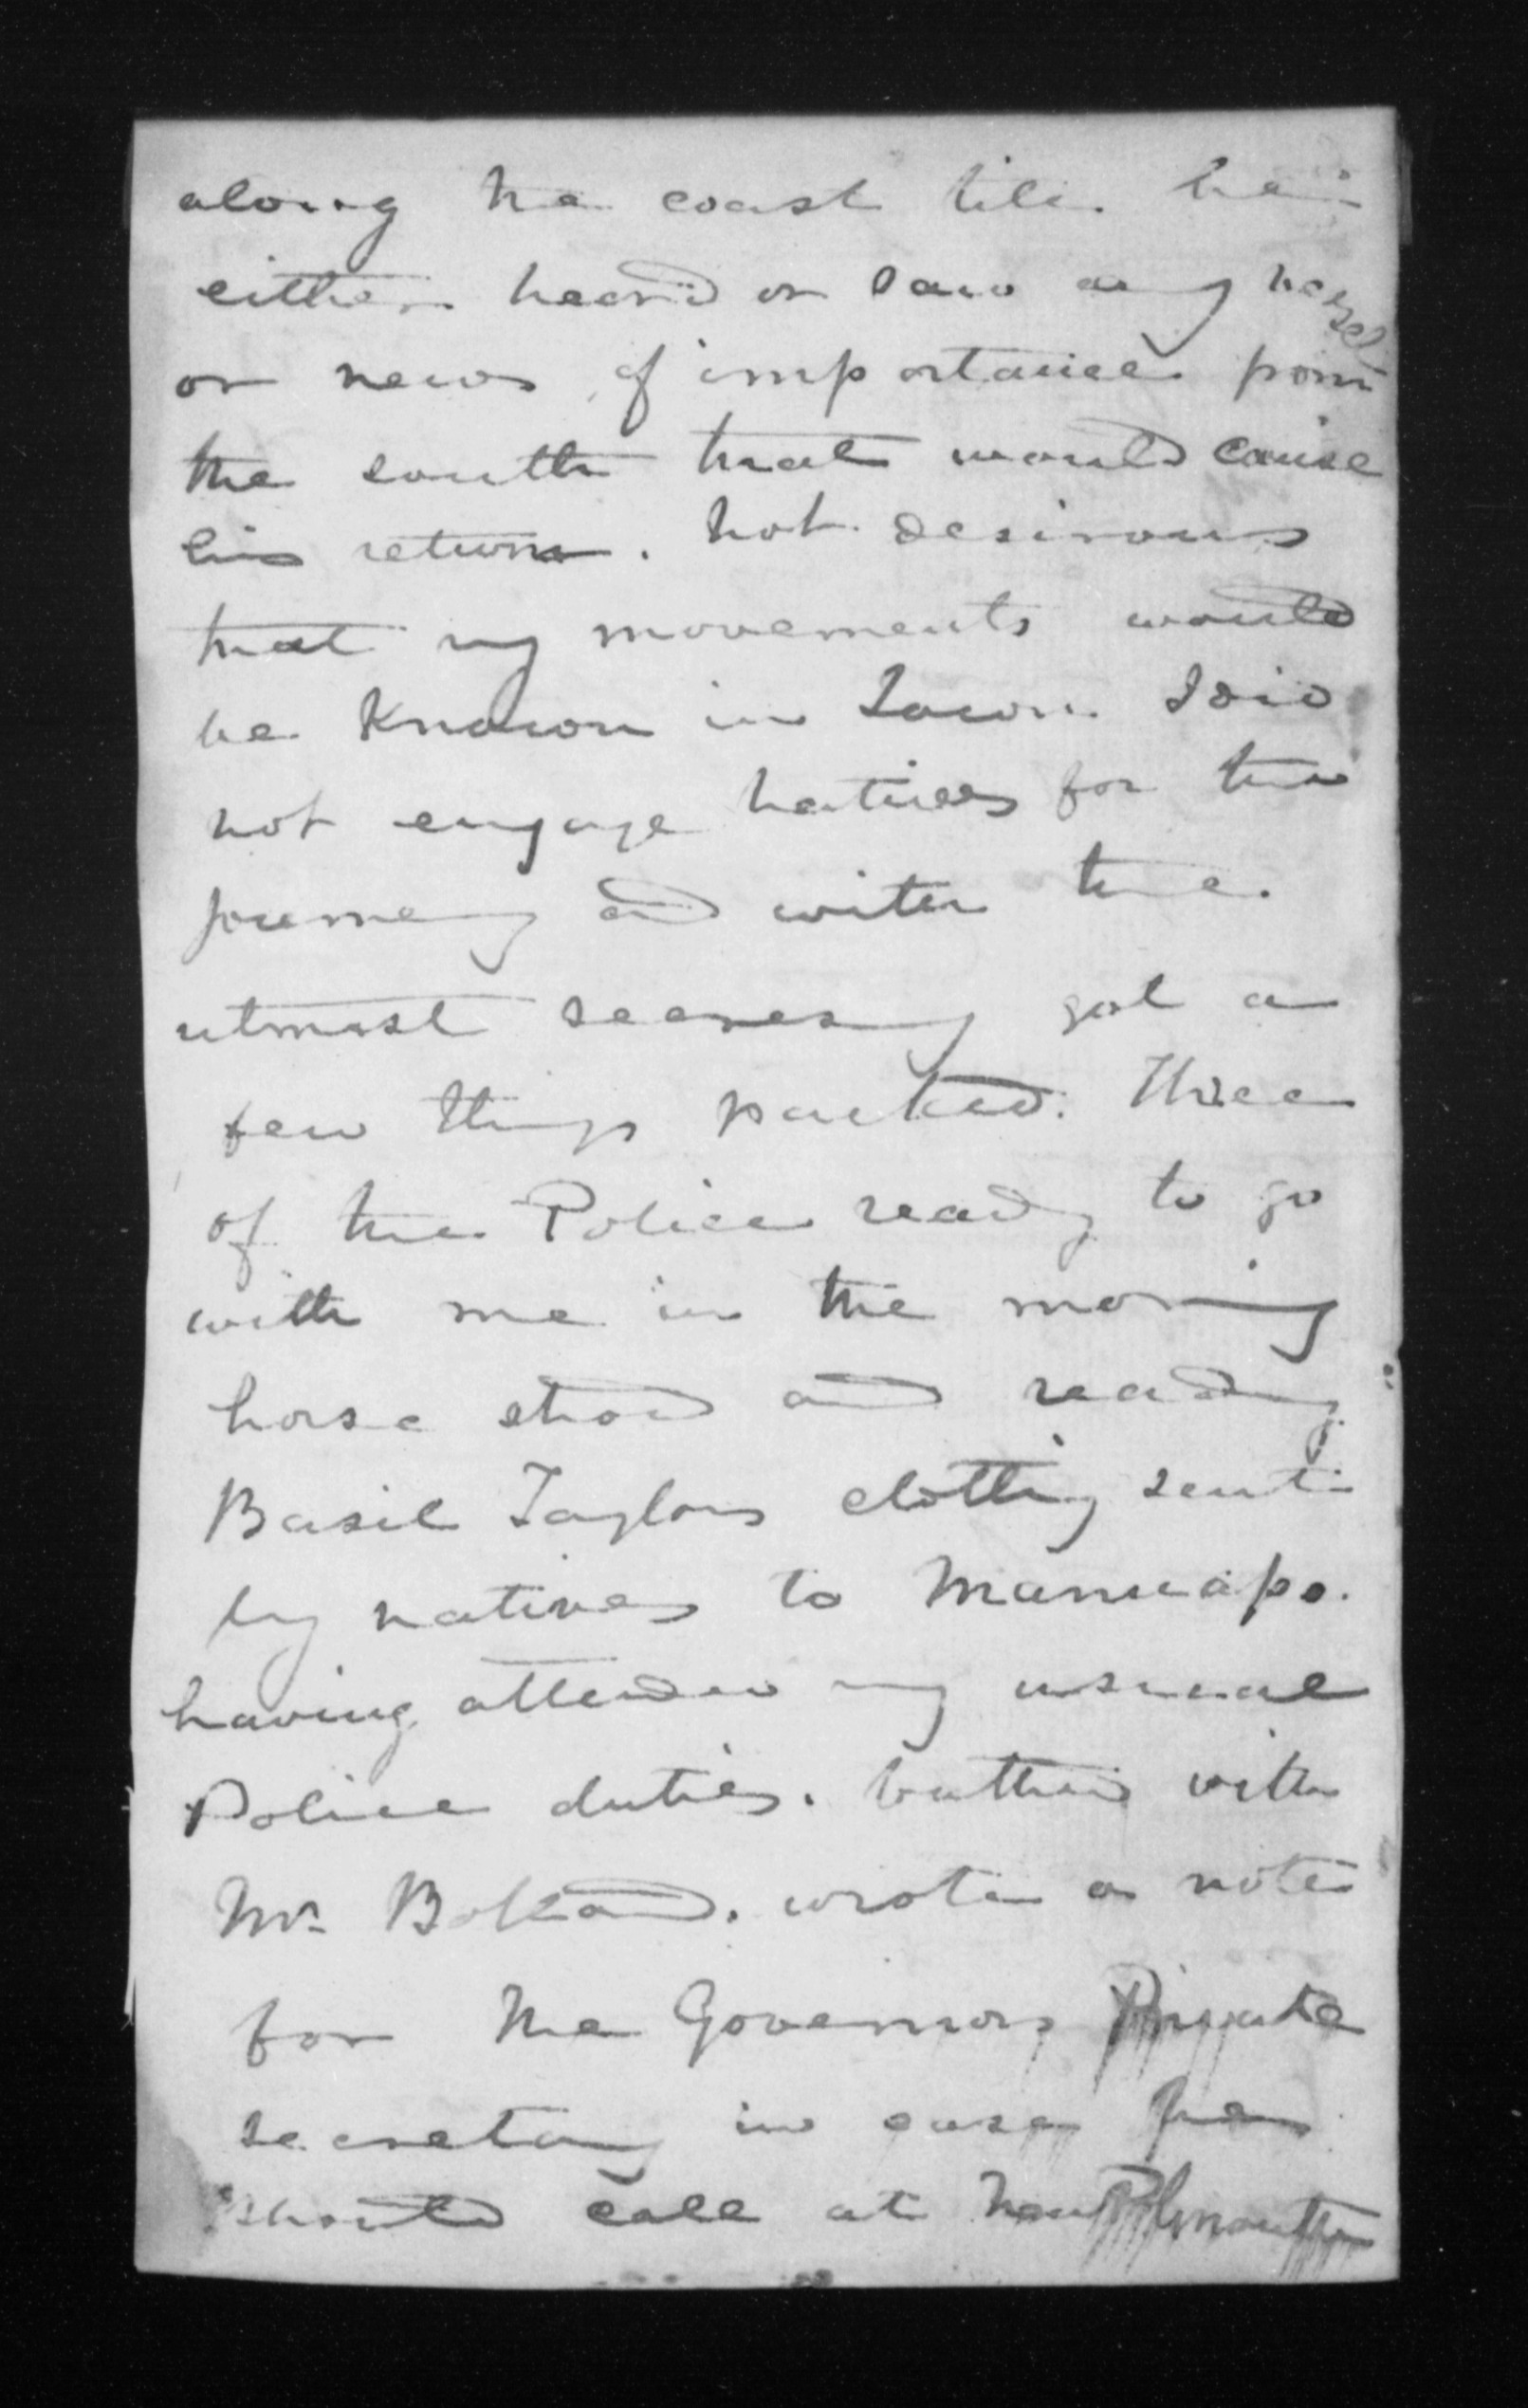 along the coast till he
either heard or saw any vessel
or news of importance from
the south that would cause
his return. Not desirous
that my movements would
be known in Town I did
not engage natives for the
journey and with the
utmost secresy got a
few things packed. Three
of the Police ready to go
with me in the morning
horse shod and ready
Basil Taylors clothing sent
by natives to Manuapo.
having attended my usual
Police duties. bathed with
Mr Boland. wrote a note
for the Governors Private
secretary in case he
should call at New Plymouth